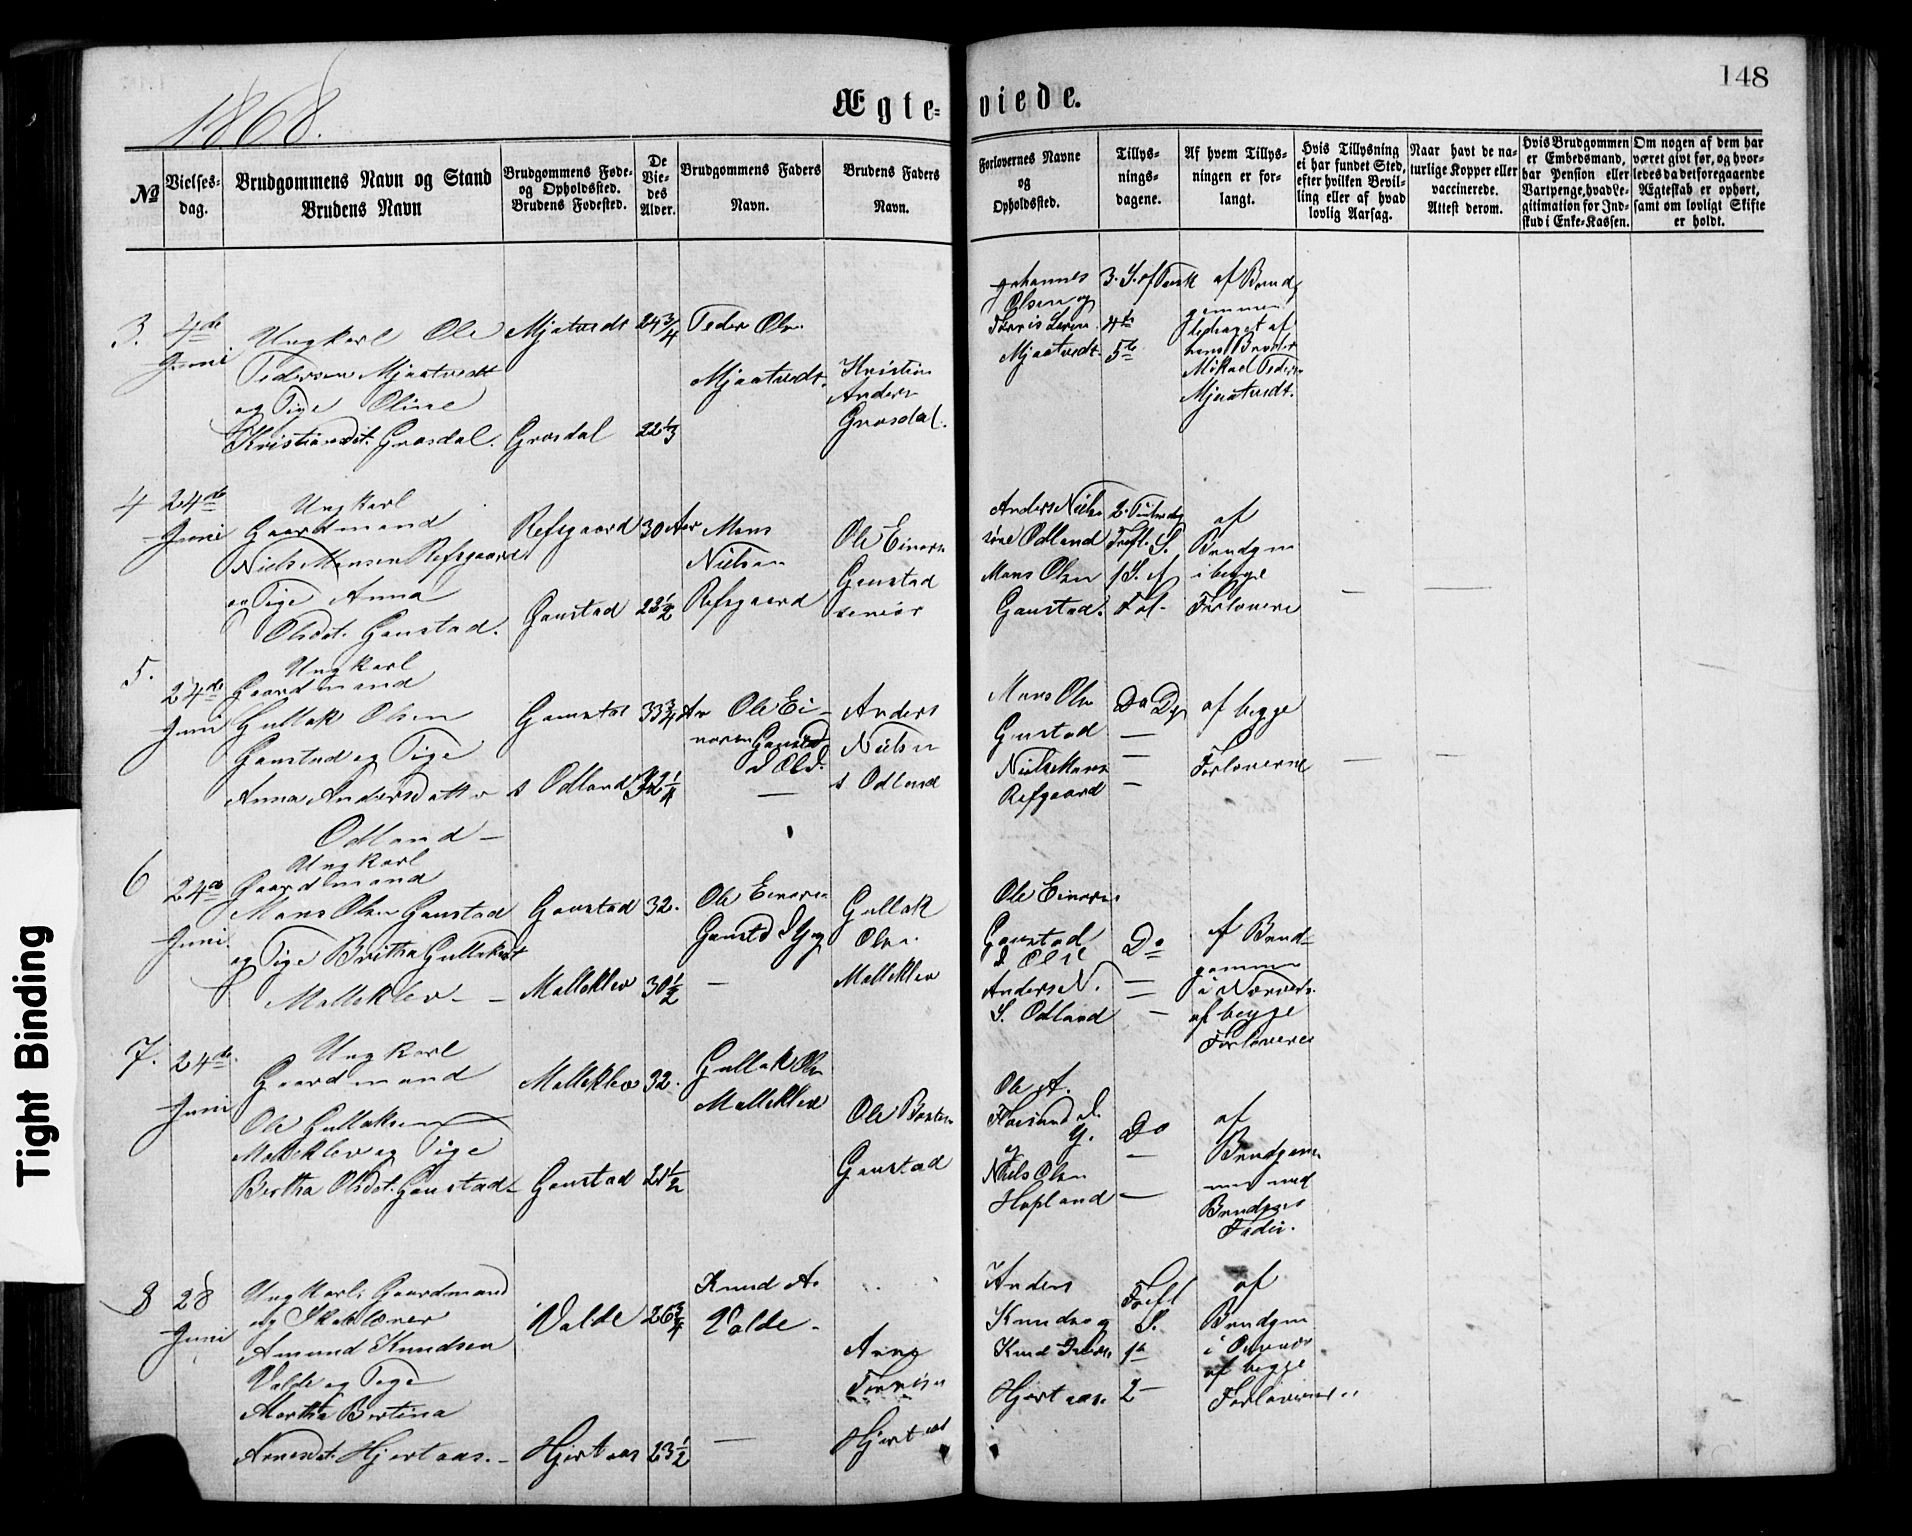 148
1868.
Ægte- viede.
No
Vielses-
dag.
Brudgommens Navn og Stand
Brudens Navn
Brudgommens Føde-
og Opholdssted.
Brudens Fødested.
De
Vie-
des
Alder.
Brudgommens Faders
Navn.
Brudens Faders
Navn.
Forlovernes Navne
og
Opholdssted.
Tillys-
nings-
dagene.
Af hvem Tillys-
ningen er for-
langt.
Hvis Tillysning
ei har fundet Sted,
efter hvilken Bevil-
ling eller af hvad
lovlig Aarsag.
Naar havt de na-
turlige Kopper eller
vaccinerede.
Attest derom.
Hvis Brudgommen
er Embedsmand,
har Pension eller
Vartpenge, hvad Le-
gitimation for Ind-
skud i Enke-Kassen.
Om nogen af dem har
været givt før, og hvor-
ledes da det foregaaende
Ægteskab er ophørt,
samt om lovligt Skifte
er holdt.
3.
4de
Juni
Ungkarl Ole
Pedersen Mjaatvedt
og Pige Oline
Kristiansdt. Grasdal.
Mjatvedt
Grasdal
24 3/4
22 1/3
Peder Olsen
Mjaatvedt.
Kristian
Anders
Grasdal.
Johannes
Olsen og
Mjaatvedt
4de
5te
af Brud
gommen
hans Broder
Mikael Peders
Mjaatvedt.
4
24de
Juni
Ungkarl
Gaardmand
Niels Monsen Refsgaard
og Pige Anna
Olsdt. Gaustad.
Refsgaard
Gaustad
30 Aar
23 1/2
Mons
Nielsen
Refsgaard
Ole Einars
Gaustad
senior
Anders Niels
Odland
Mons Olsen
Gaustad.
af
Brudgm
i begge
Forlovere
5.
24de
Juni
Ungkarl
Gaardmand
Gullak Olsen
Gaustad og Pige
Anna Andersdatter
Odland
Gaustad
s Odland
33 3/4
32 1/4
Ole Ei-
narsen Gaustad
d Old.
Anders
Nielsen
s Odland
Mons Olsn
Gaustad
Niels Mons
Refgaard
Do Do
af begge
Forloverne
6
24de
Juni.
Ungkarl
Gaardmand
Mons Olsen Gaustad
og Pige Britha Gullaksdt
Malleklev
Gaustad
Malleklev
32.
30 1/2
Ole Einars
Gaustd d Yng
Gullak
Olsn
Malleklev
Ole Einars
Gaustad
d Old
Anders N.
S. Odland
Do
af Brud-
gommen
i Nærvær
af begge
Forlovere
7.
24de
Juni
Ungkarl
Gaardmand
Ole Gullaksen
Malleklev og Pige
Bertha Olsdt. Gaustad
Malleklev
Gaustad
32.
21 1/2
Gullak Olsn
Malleklev
Gaustad
Ole A.
d.
y.
og
Niels Olsen
Hopland
Do
af
Brudgom-
men med
Brudens
Fader.
8
28
Juni
Ungkarl, Gaardmand
og Skolelærer
Amund Knudsen
Valde og Pige
Martha Bertina
Arnesdt. Hjertaas.
Valde
Hjertaas
26 3/4
23 1/2
Knud A.
Valde
Arne
Hjertaas
Anders
Knudsen og
Hjertaas.
S.
1ste
2
af
Brudgm
af begge
Forlovere
Tight Binding